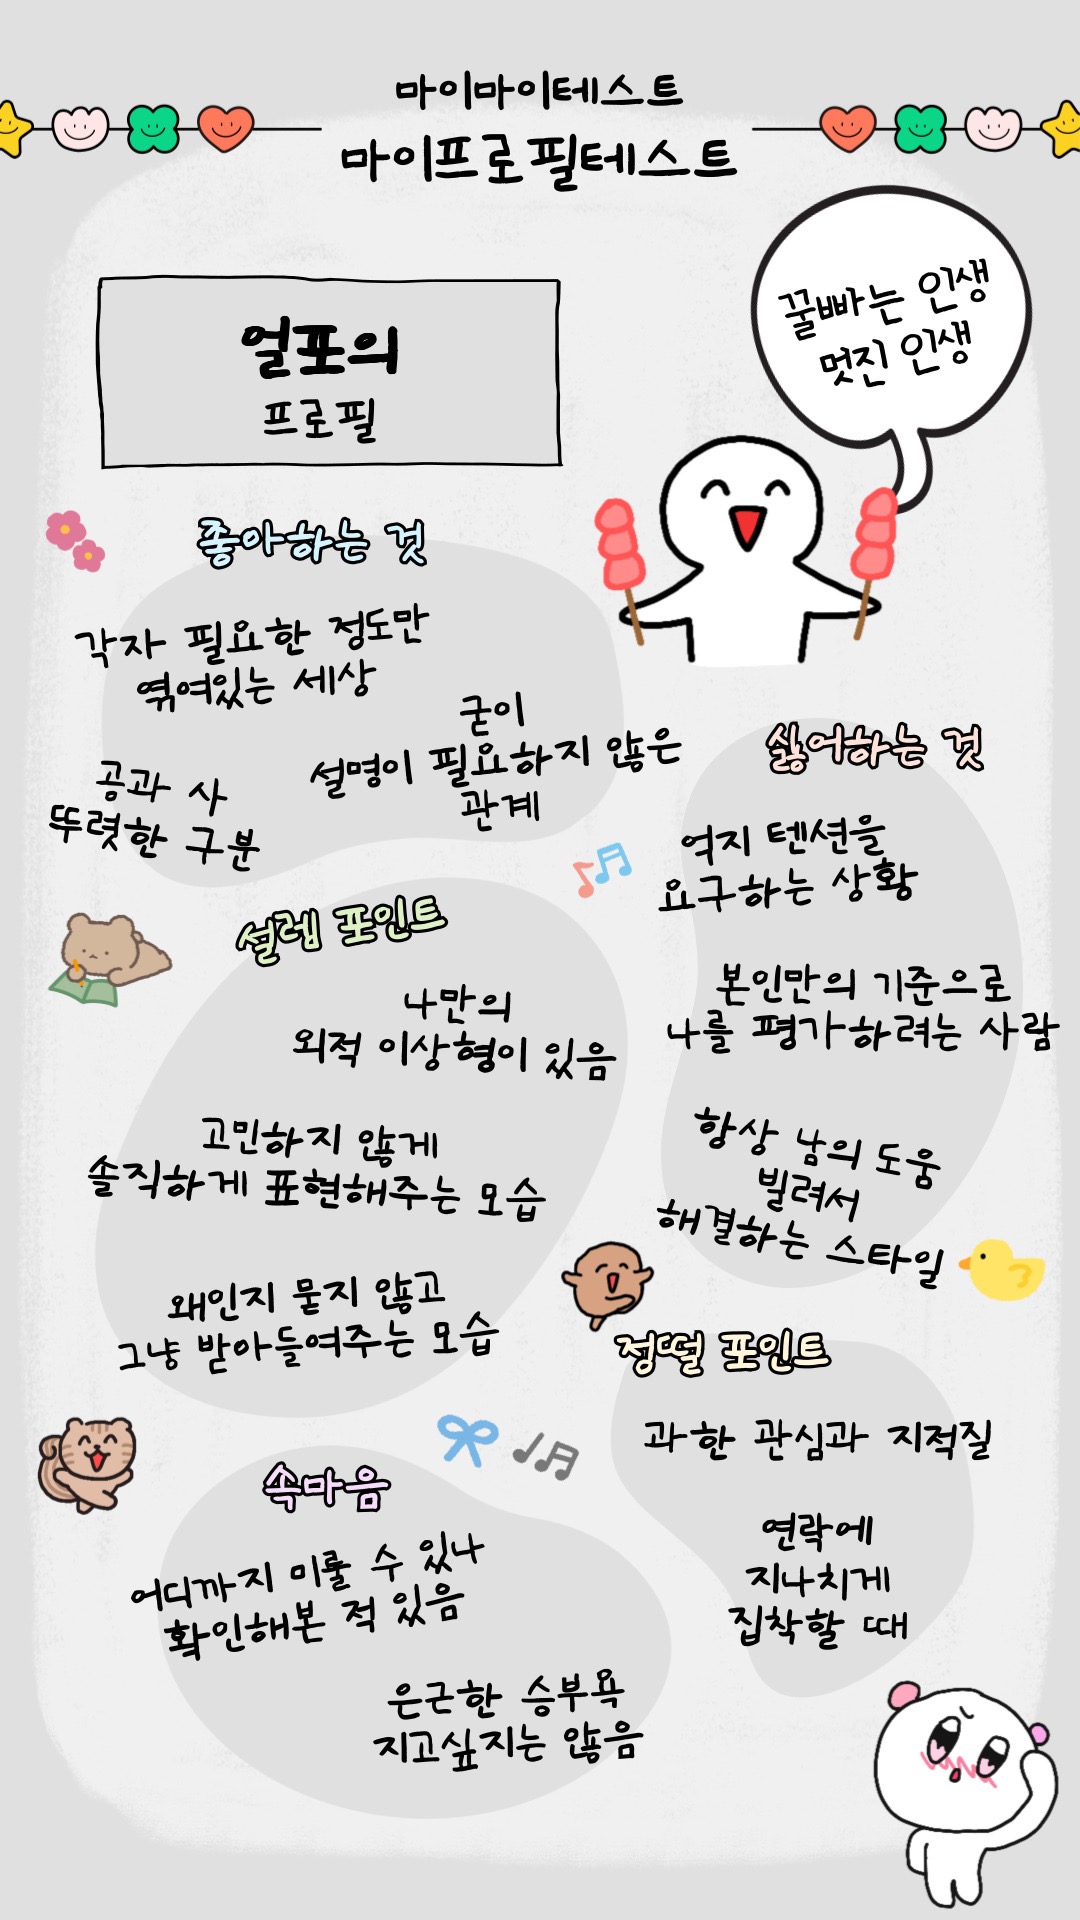 마이마이테스트
마이프로필테스트
꿀빠는 인생
멋진 인생
얼포의
프로필
좋아하는 것
각자 필요한 정도만
엮여있는 세상
굳이
설명이 필요하지 않은
관계
공과 사
뚜렷한 구분
싫어하는 것
억지 텐션을
요구하는 상황
본인만의 기준으로
나를 평가하려는 사람
항상 남의 도움
빌려서
해결하는 스타일
설렘 포인트
나만의
외적 이상형이 있음
고민하지 않게
솔직하게 표현해주는 모습
왜인지 묻지 않고
그냥 받아들여주는 모습
정떨 포인트
과한 관심과 지적질
연락에
지나치게
집착할 때
속마음
어디까지 미룰 수 있나
확인해본 적 있음
은근한 승부욕
지고싶지는 않음